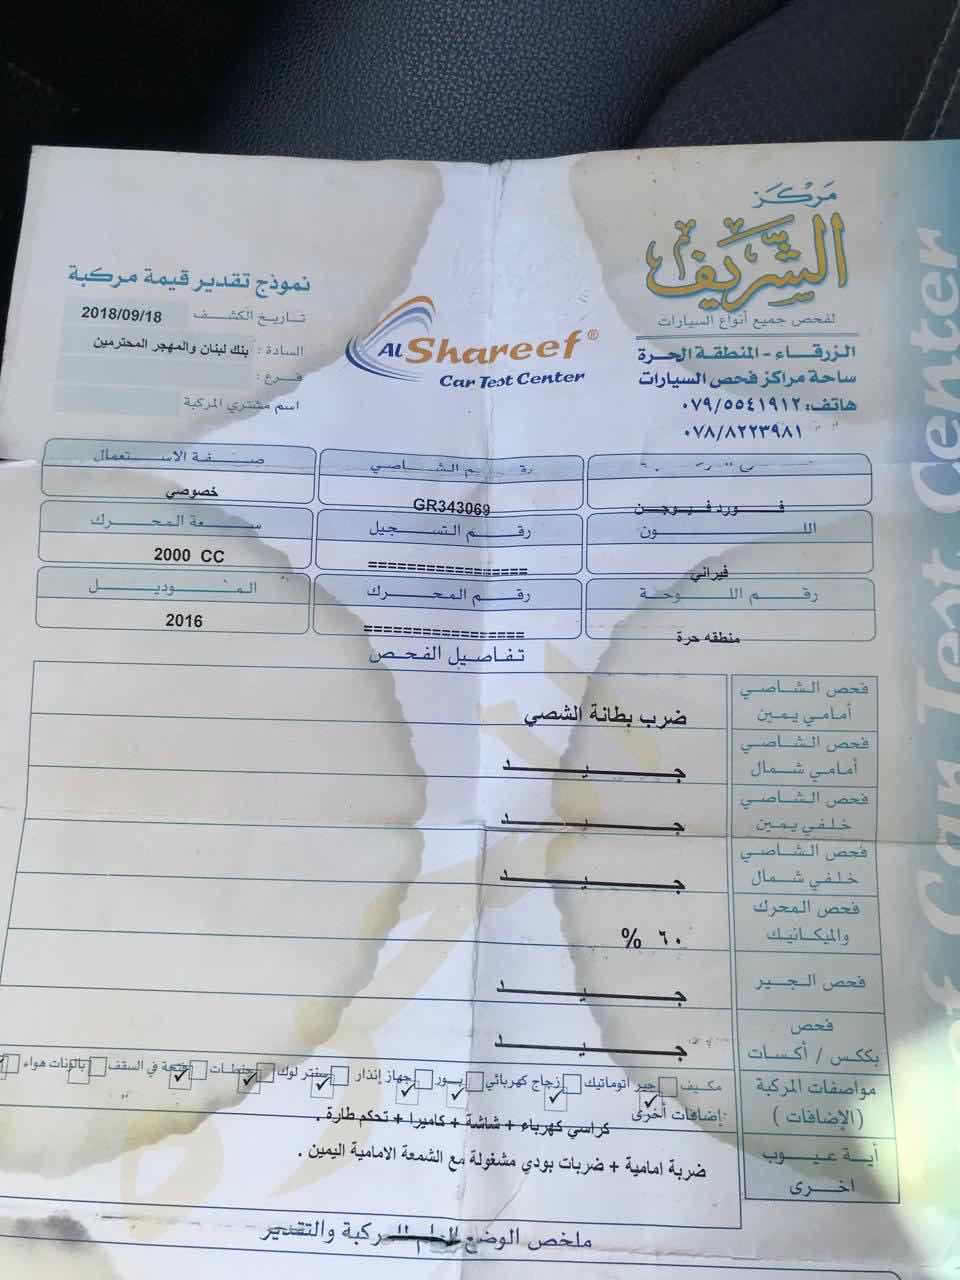 مركز
الشريف
لفحص جميع أنواع السيارات
الزرقاء - المنطقة الحرة
ساحة مراكز فحص السيارات
هاتف: ٠٧٩/٥٥٤١٩١٢
٠٧٨/٨٢٢٣٩٨١
AL Shareef®
Car Test Center
نموذج تقدير قيمة مركبة
تاريخ الكشف 2018/09/18
السادة : بنك لبنان والمهجر المحترمين
فرع :
اسم مشتري المركبة
فورد فيوجن
رقم الشاصي
GR343069
صفة الاستعمال
خصوصي
اللون
فيراني
رقم التسجيل
=================
سعة المحرك
2000 CC
رقم اللوحة
منطقه حرة
رقم المحرك
=================
الموديل
2016
تفاصيل الفحص
فحص الشاصي أمامي يمين
ضرب بطانة الشصي
فحص الشاصي أمامي شمال
جيد
فحص الشاصي خلفي يمين
جيد
فحص الشاصي خلفي شمال
جيد
فحص المحرك والميكانيك
٦٠ %
فحص الجير
جيد
فحص بككس / أكسات
جيد
مواصفات المركبة (الإضافات)
مكيف جير اتوماتيك زجاج كهربائي بور جهاز إنذار سنتر لوك جنطات فتحة في السقف بالونات هواء
إضافات أخرى: كراسي كهرباء + شاشة + كاميرا + تحكم طارة .
أية عيوب اخرى
ضربة امامية + ضربات بودي مشغولة مع الشمعة الامامية اليمين .
ملخص الوضع العام للمركبة والتقدير
Car Test Center